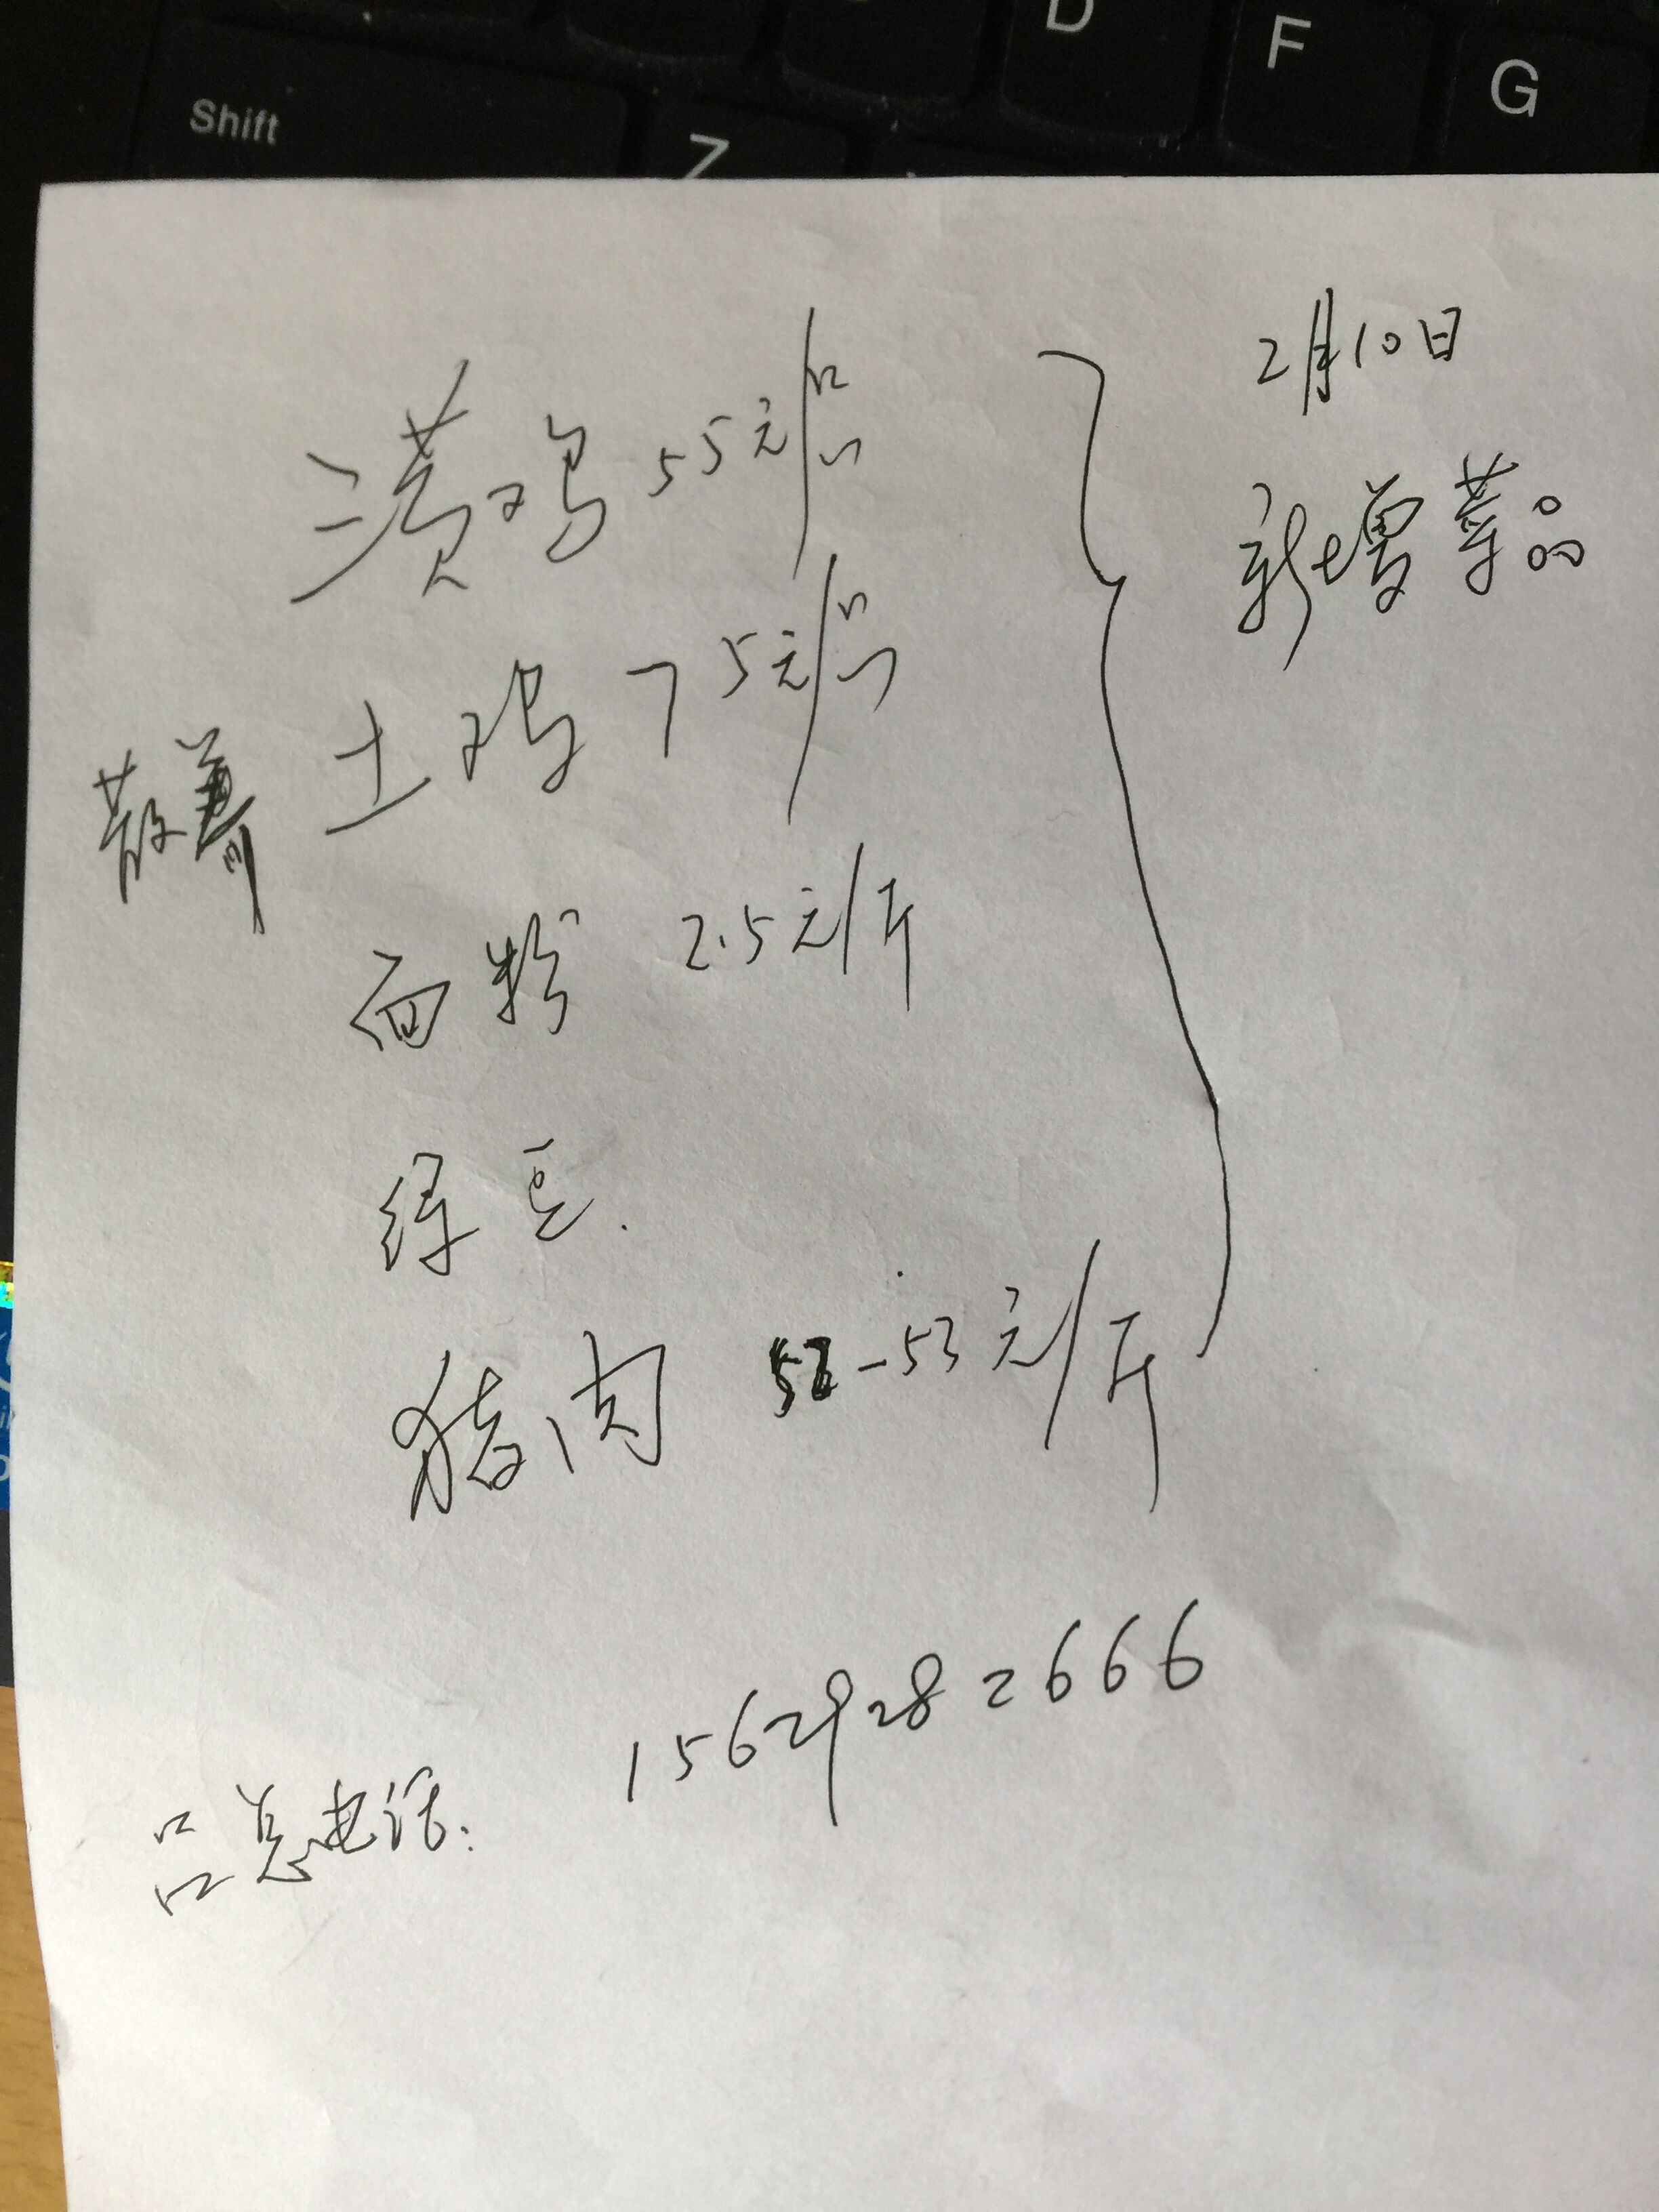 D F G
Shift Z
2月10日
新增菜品
三黄鸡 55元/只
散养 土鸡 75元/只
面粉 2.5元/斤
绿豆.
猪肉 52-53元/斤
吕总电话: 15629282666